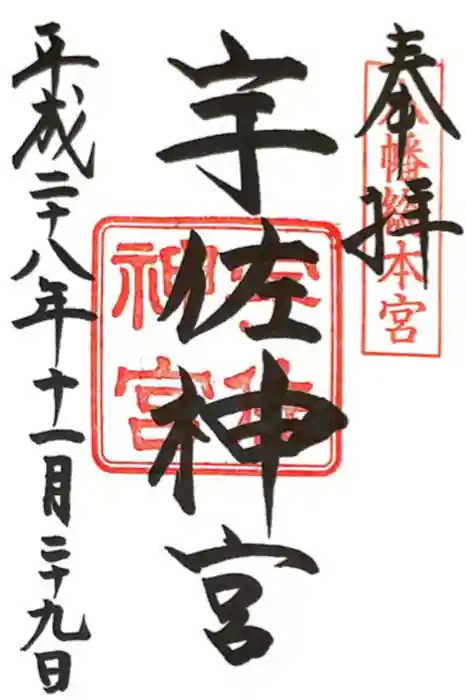 奉拝
八幡総本宮
宇佐神宮
宇佐
神宮
平成二十八年十一月二十九日